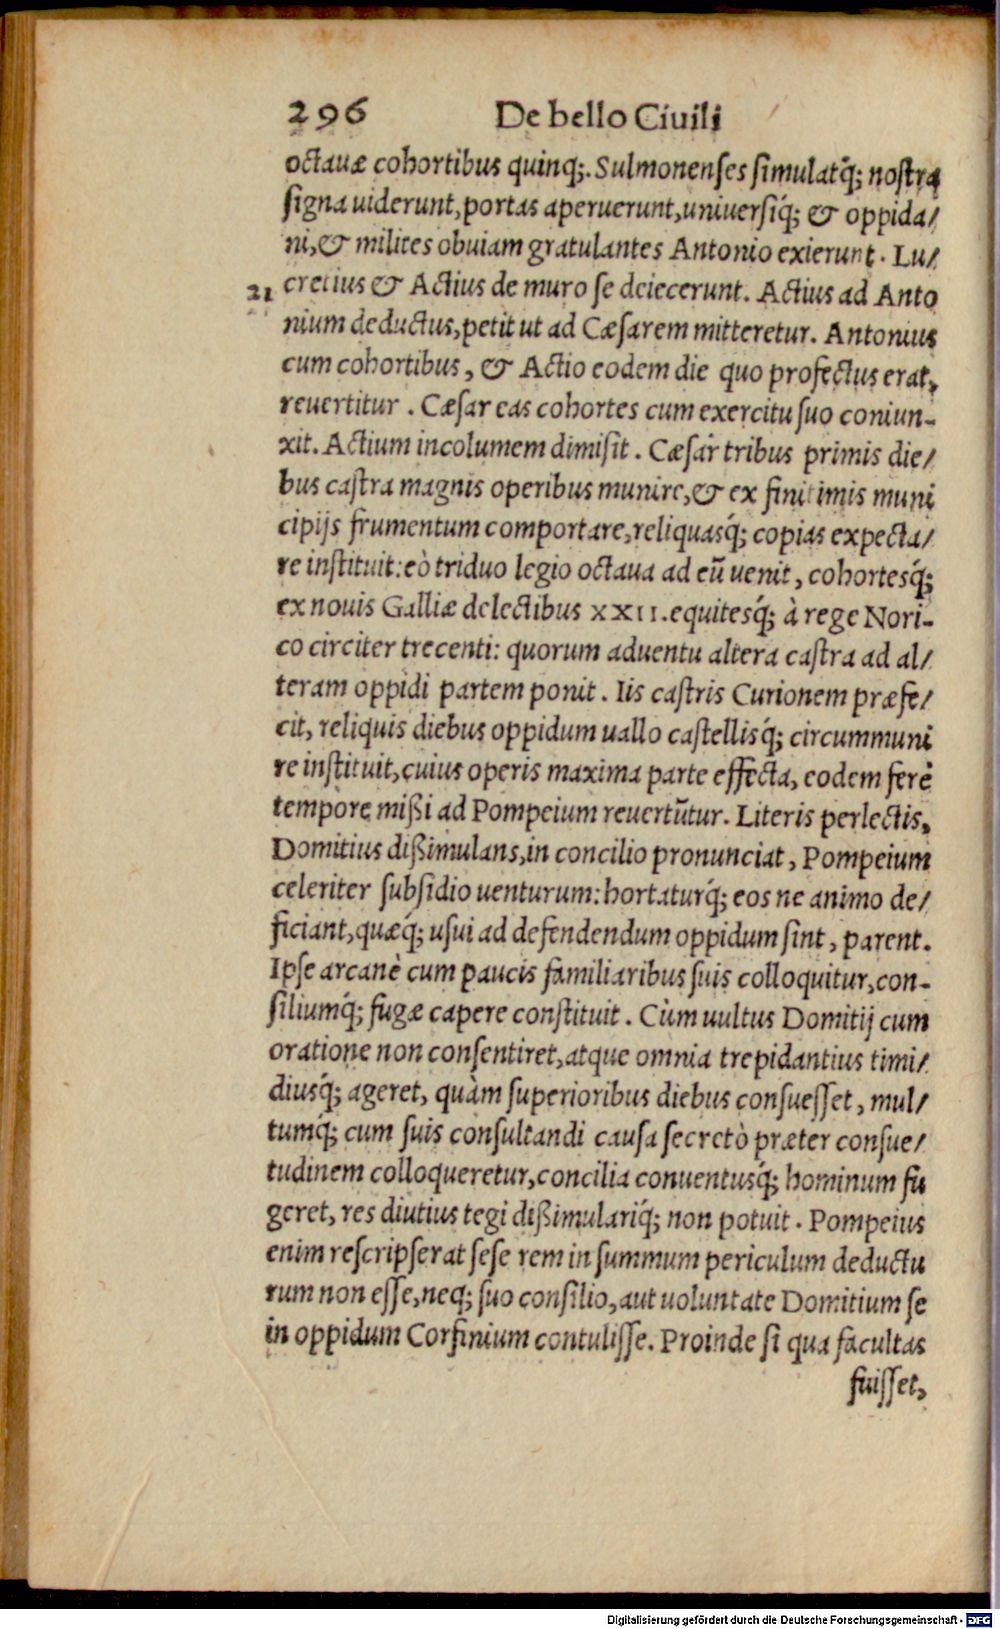 296 De bello Ciuili
octauæ cohortibus quinq;. Sulmonenses simulatq́; nostra
signa uiderunt, portas aperuerunt, uniuersiq́; & oppida/
ni, & milites obuiam gratulantes Antonio exierunt. Lu/
21 cretius & Actius de muro se deiecerunt. Actius ad Anto
nium deductus, petit ut ad Cæsarem mitteretur. Antonius
cum cohortibus, & Actio eodem die quo profectus erat,
reuertitur. Cæsar eas cohortes cum exercitu suo coniun-
xit. Actium incolumem dimisit. Cæsar tribus primis die/
bus castra magnis operibus munire, & ex finitimis muni
cipijs frumentum comportare, reliquasq́; copias expecta/
re instituit: eò triduo legio octaua ad eũ uenit, cohortesq́;
ex nouis Galliæ delectibus XXII. equitesq́; à rege Nori-
co circiter trecenti: quorum aduentu altera castra ad al/
teram oppidi partem ponit. Iis castris Curionem præfe/
cit, reliquis diebus oppidum uallo castellisq́; circummuni
re instituit, cuius operis maxima parte effecta, eodem ferè
tempore mißi ad Pompeium reuertũtur. Literis perlectis,
Domitius dißimulans, in concilio pronunciat, Pompeium
celeriter subsidio uenturum: hortaturq́; eos ne animo de/
ficiant, quæq́; usui ad defendendum oppidum sint, parent.
Ipse arcanè cum paucis familiaribus suis colloquitur, con-
siliumq́; fugæ capere constituit. Cùm uultus Domitij cum
oratione non consentiret, atque omnia trepidantius timi/
diusq́; ageret, quàm superioribus diebus consuesset, mul/
tumq́; cum suis consultandi causa secretò præter consue/
tudinem colloqueretur, concilia conuentusq́; hominum fu
geret, res diutius tegi dißimulariq́; non potuit. Pompeius
enim rescripserat sese rem in summum periculum deductu
rum non esse, neq; suo consilio, aut uoluntate Domitium se
in oppidum Corfinium contulisse. Proinde si qua facultas
fuisset,
Digitalisierung gefördert durch die Deutsche Forschungsgemeinschaft - DFG